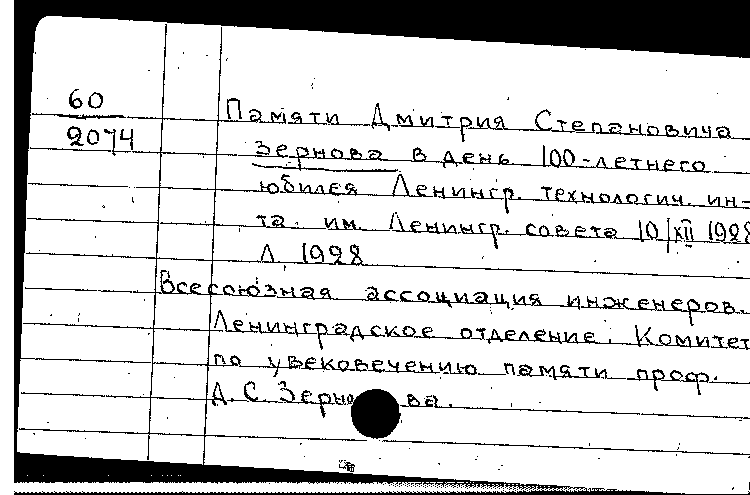 60
2074
Памяти Дмитрия Степановича
Зернова в день 100-летнего
юбилея Ленингр. технологич. ин-
та. им. Ленингр. совета 10/XII 1928
Л, 1928
Всесоюзная ассоциация инженеров.
Ленинградское отделение. Комитет
по увековечению памяти проф.
Д. С. Зернова.